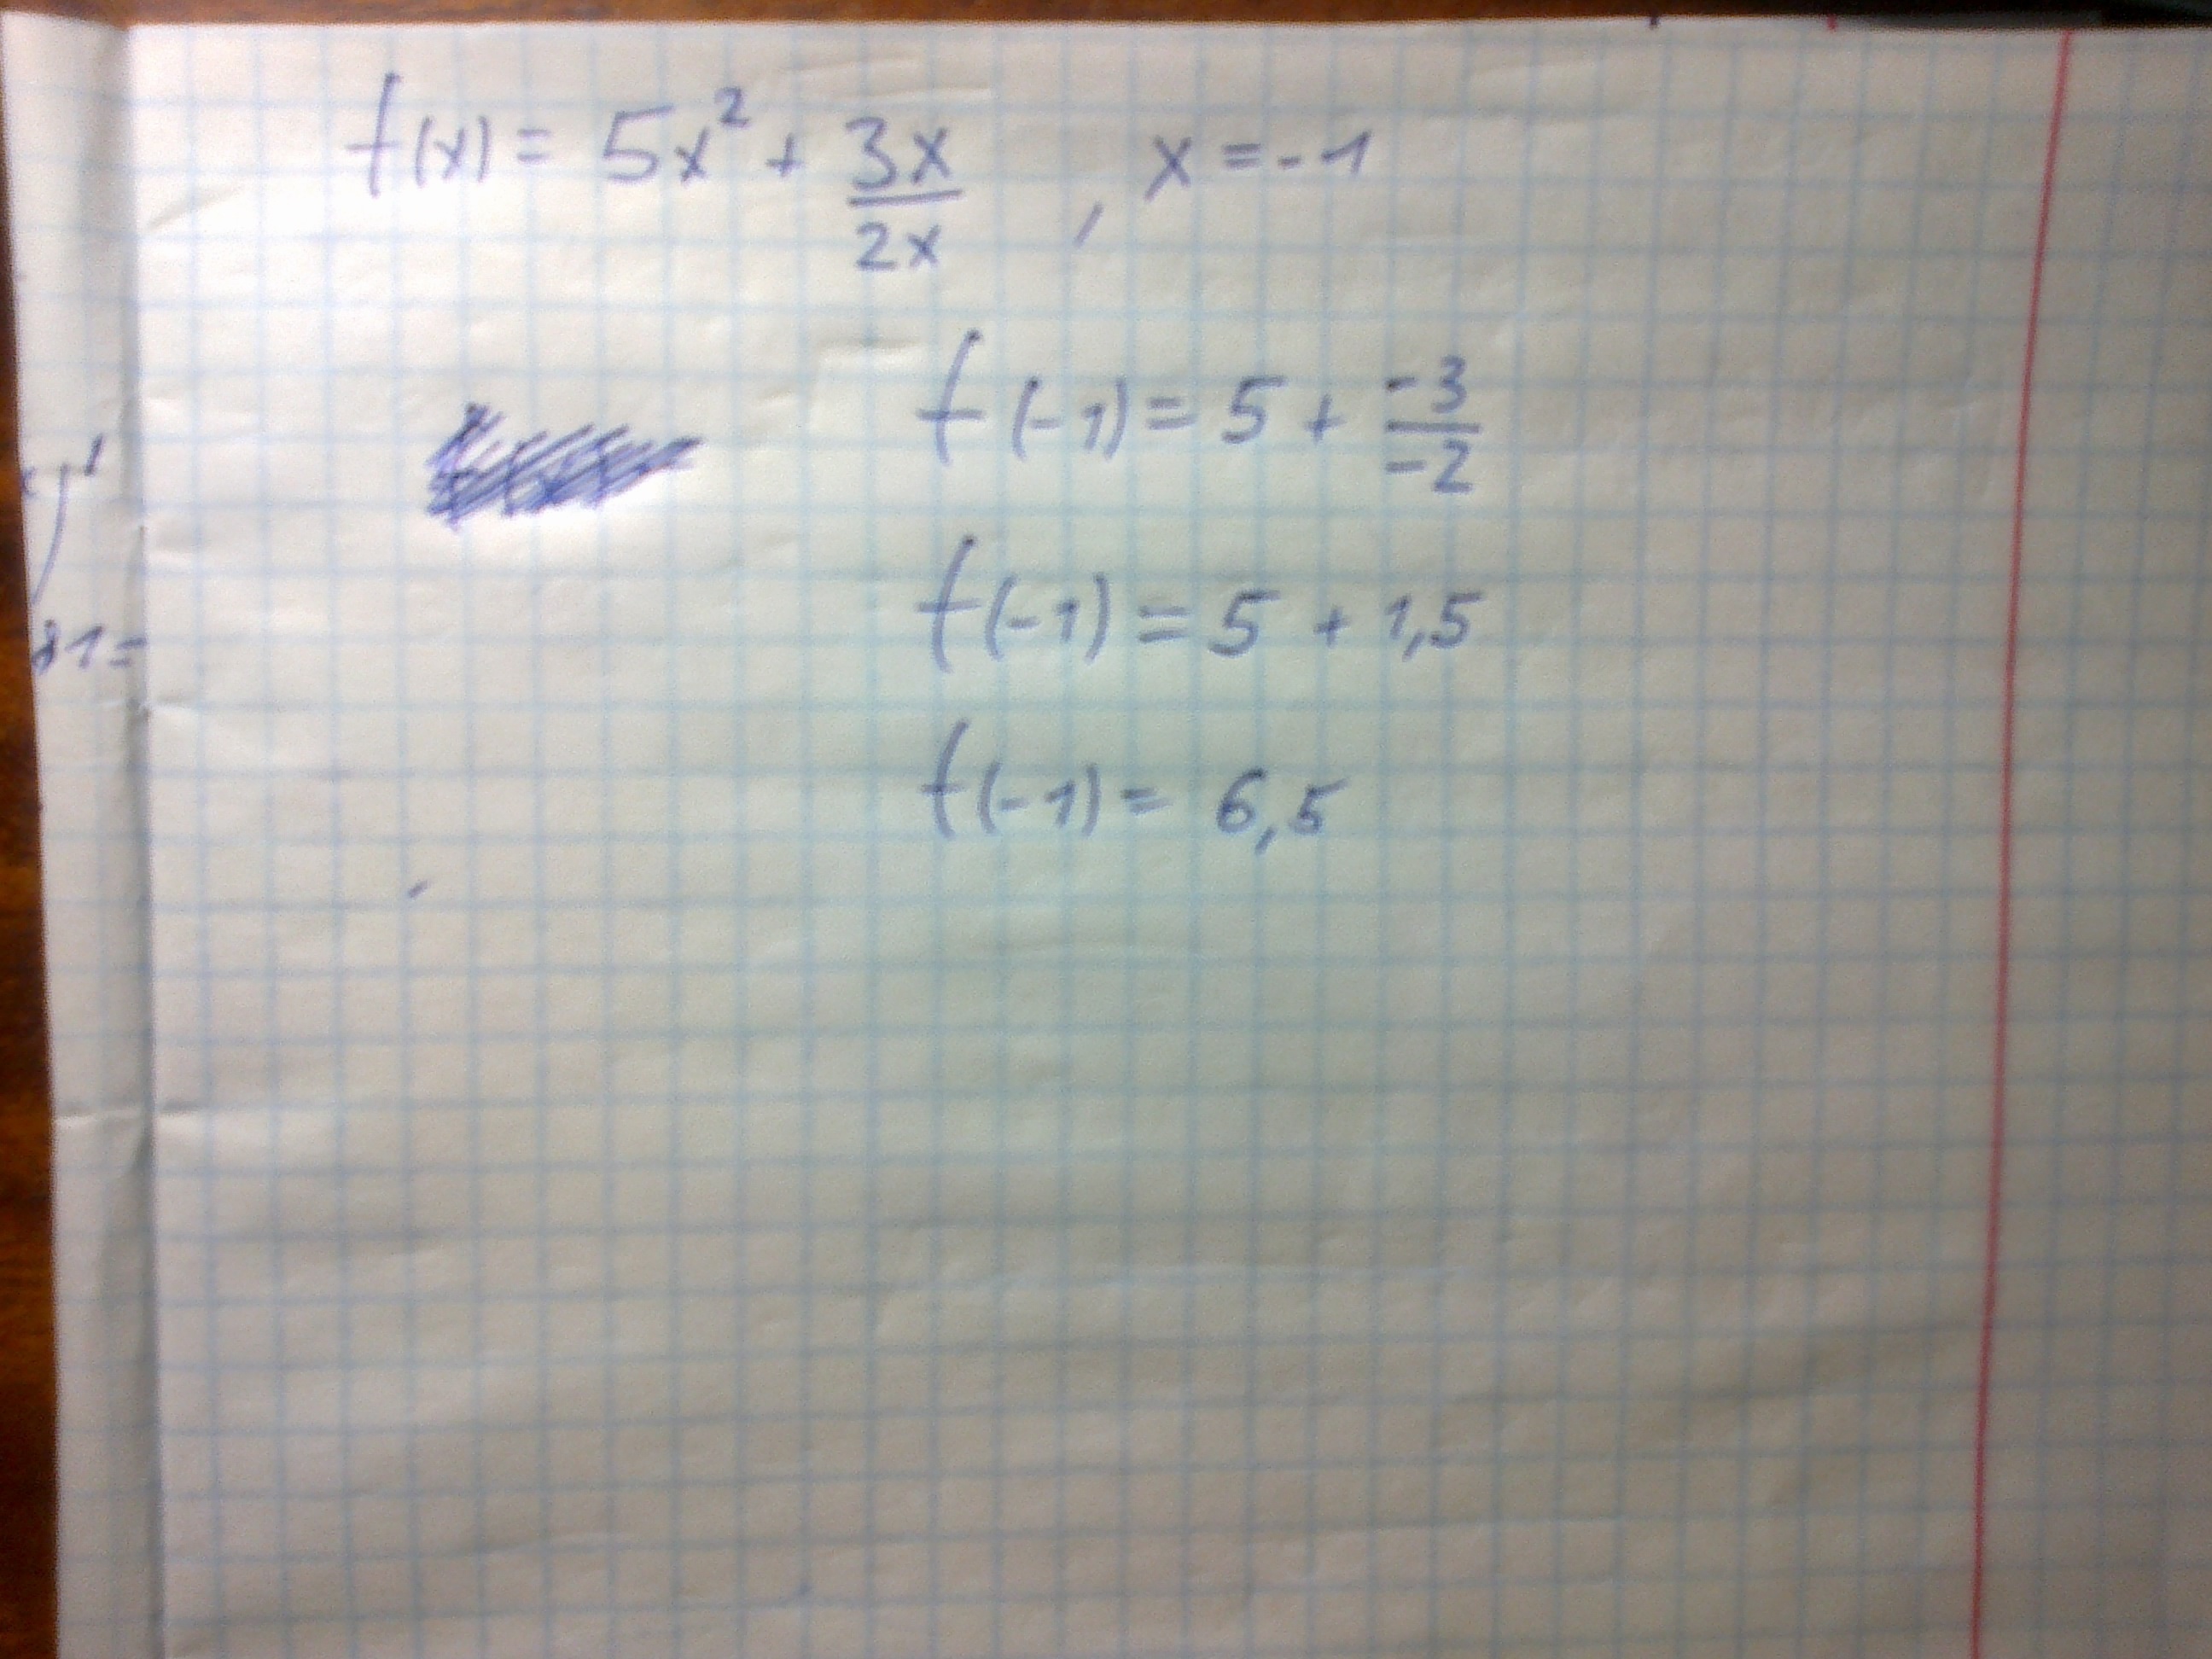 f(x) = 5x² + 3x/2x , x = -1
f(-1) = 5 + -3/-2
f(-1) = 5 + 1,5
f(-1) = 6,5